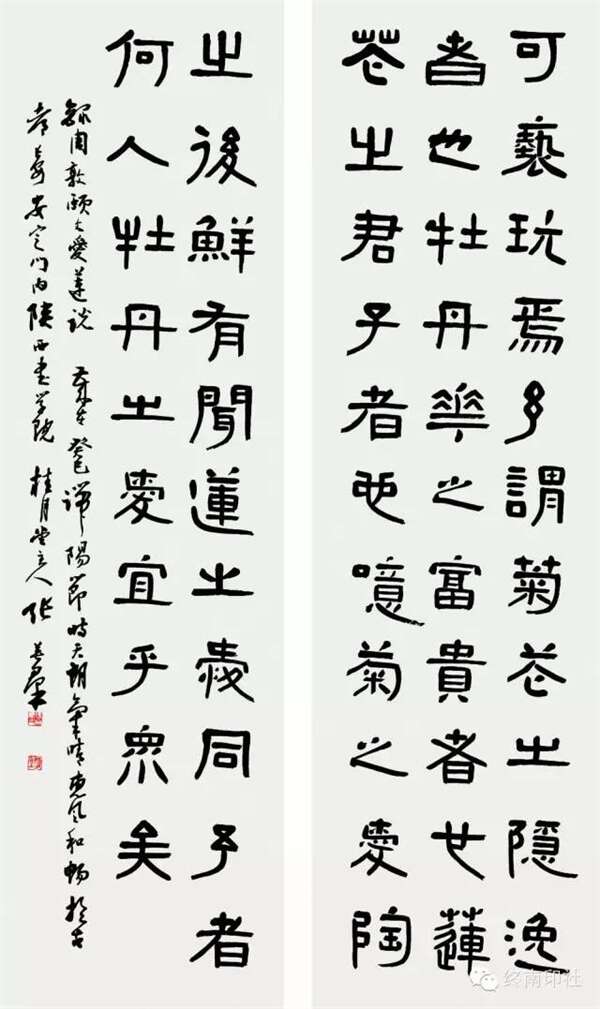 可褻玩焉予謂菊花之隱逸
者也牡丹華之富貴者也蓮
花之君子者也噫菊之愛陶
之後鮮有聞蓮之愛同予者
何人牡丹之愛宜乎眾矣
錄周敦頤之愛蓮說 歲在癸巳端陽節時天朗氣清惠風和暢於古
安定門内陝西書學院 桂月堂主人 張
终南印社